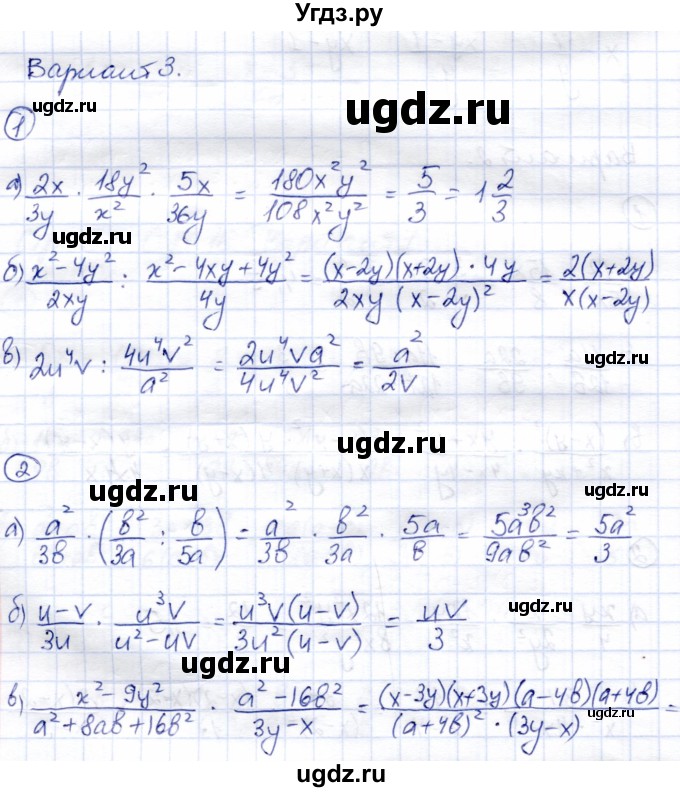 Угдз.ру
Вариант 3.
ugdz.ru
ugdz.ru
1
а) 2x/3y · 18y²/x² · 5x/36y = 180x²y²/108x²y² = 5/3 = 1 2/3
ugdz.ru
ugdz.ru
б) x² - 4y²/2xy : x² - 4xy + 4y²/4y = (x-2y)(x+2y) · 4y/2xy (x-2y)² = 2(x+2y)/x(x-2y)
ugdz.ru
в) 2u⁴v : 4u⁴v²/a² = 2u⁴va²/4u⁴v² = a²/2v
ugdz.ru
ugdz.ru
2
ugdz.ru
ugdz.ru
а) a²/3в · (в²/3a : в/5a) = a²/3в · в²/3a · 5a/в = 5a³в²/9aв² = 5a²/3
ugdz.ru
б) u-v/3u · u³v/u²-uv = u³v(u-v)/3u²(u-v) = uv/3
ugdz.ru
ugdz.ru
в) x² - 9y²/a² + 8aв + 16в² · a² - 16в²/3y - x = (x-3y)(x+3y)(a-4в)(a+4в)/(a+4в)² · (3y-x) =
ugdz.ru
ugdz.ru
ugdz.ru